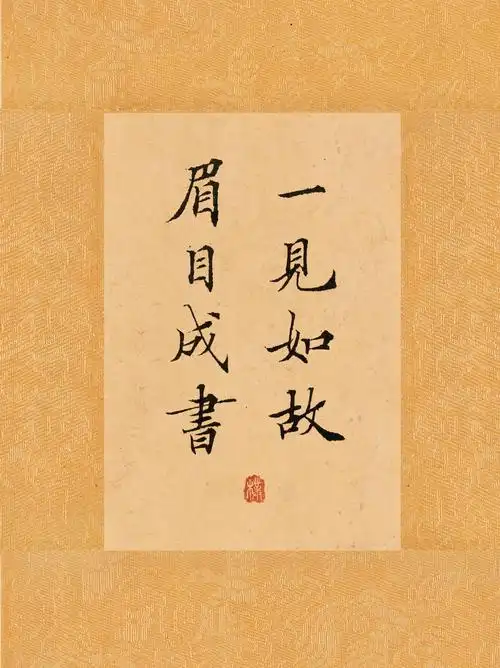 一見如故
眉目成書